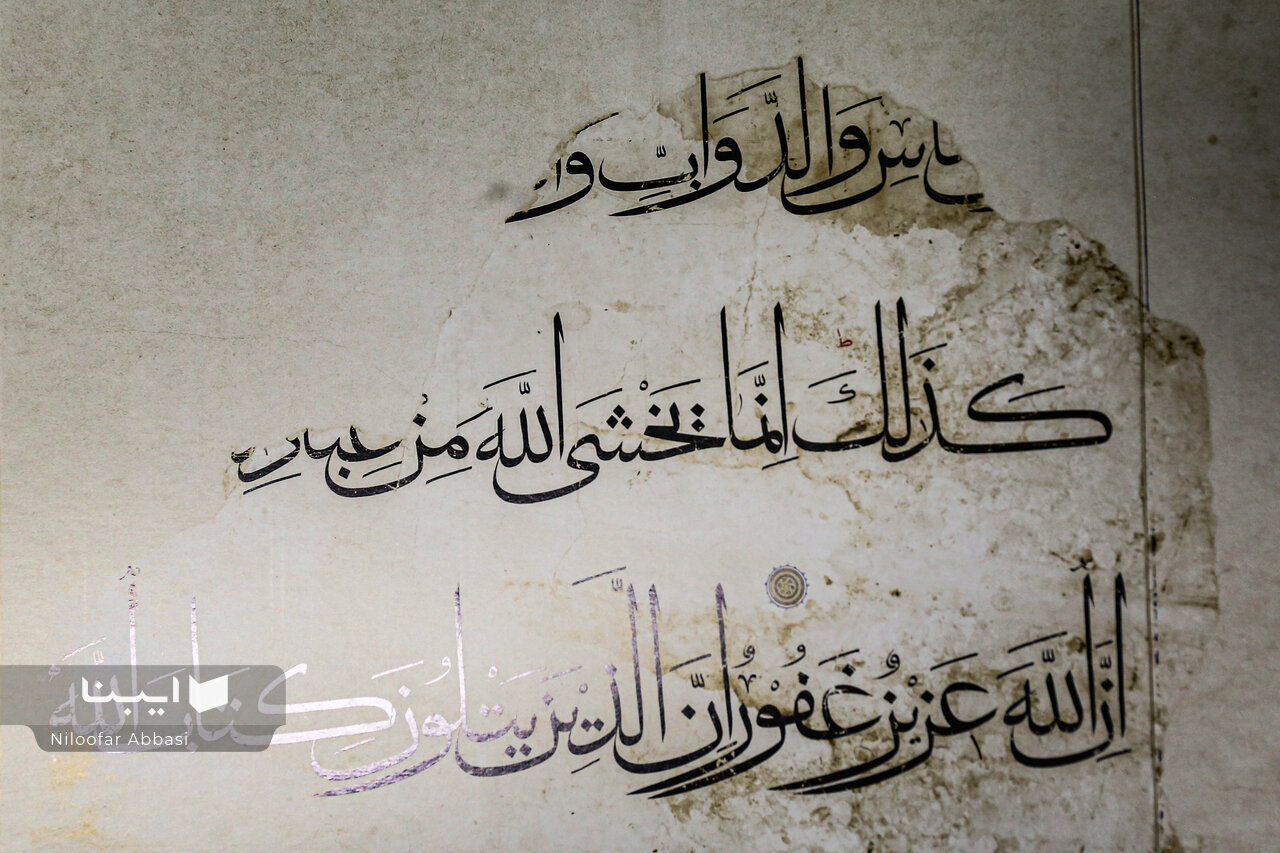 ـاسِ وَالدَّوَابِّ وَا
كَذَلِكَ ط اِنَّمَا يَخْشَى اللَّهَ مِنْ عِبَادِ
اِنَّ اللَّهَ عَزِيزٌ غَفُوْرٌ اِنَّ الَّذِيْنَ يَتْلُوْنَ كِتَابَ اللَّهِ
ایبنا
Niloofar Abbasi